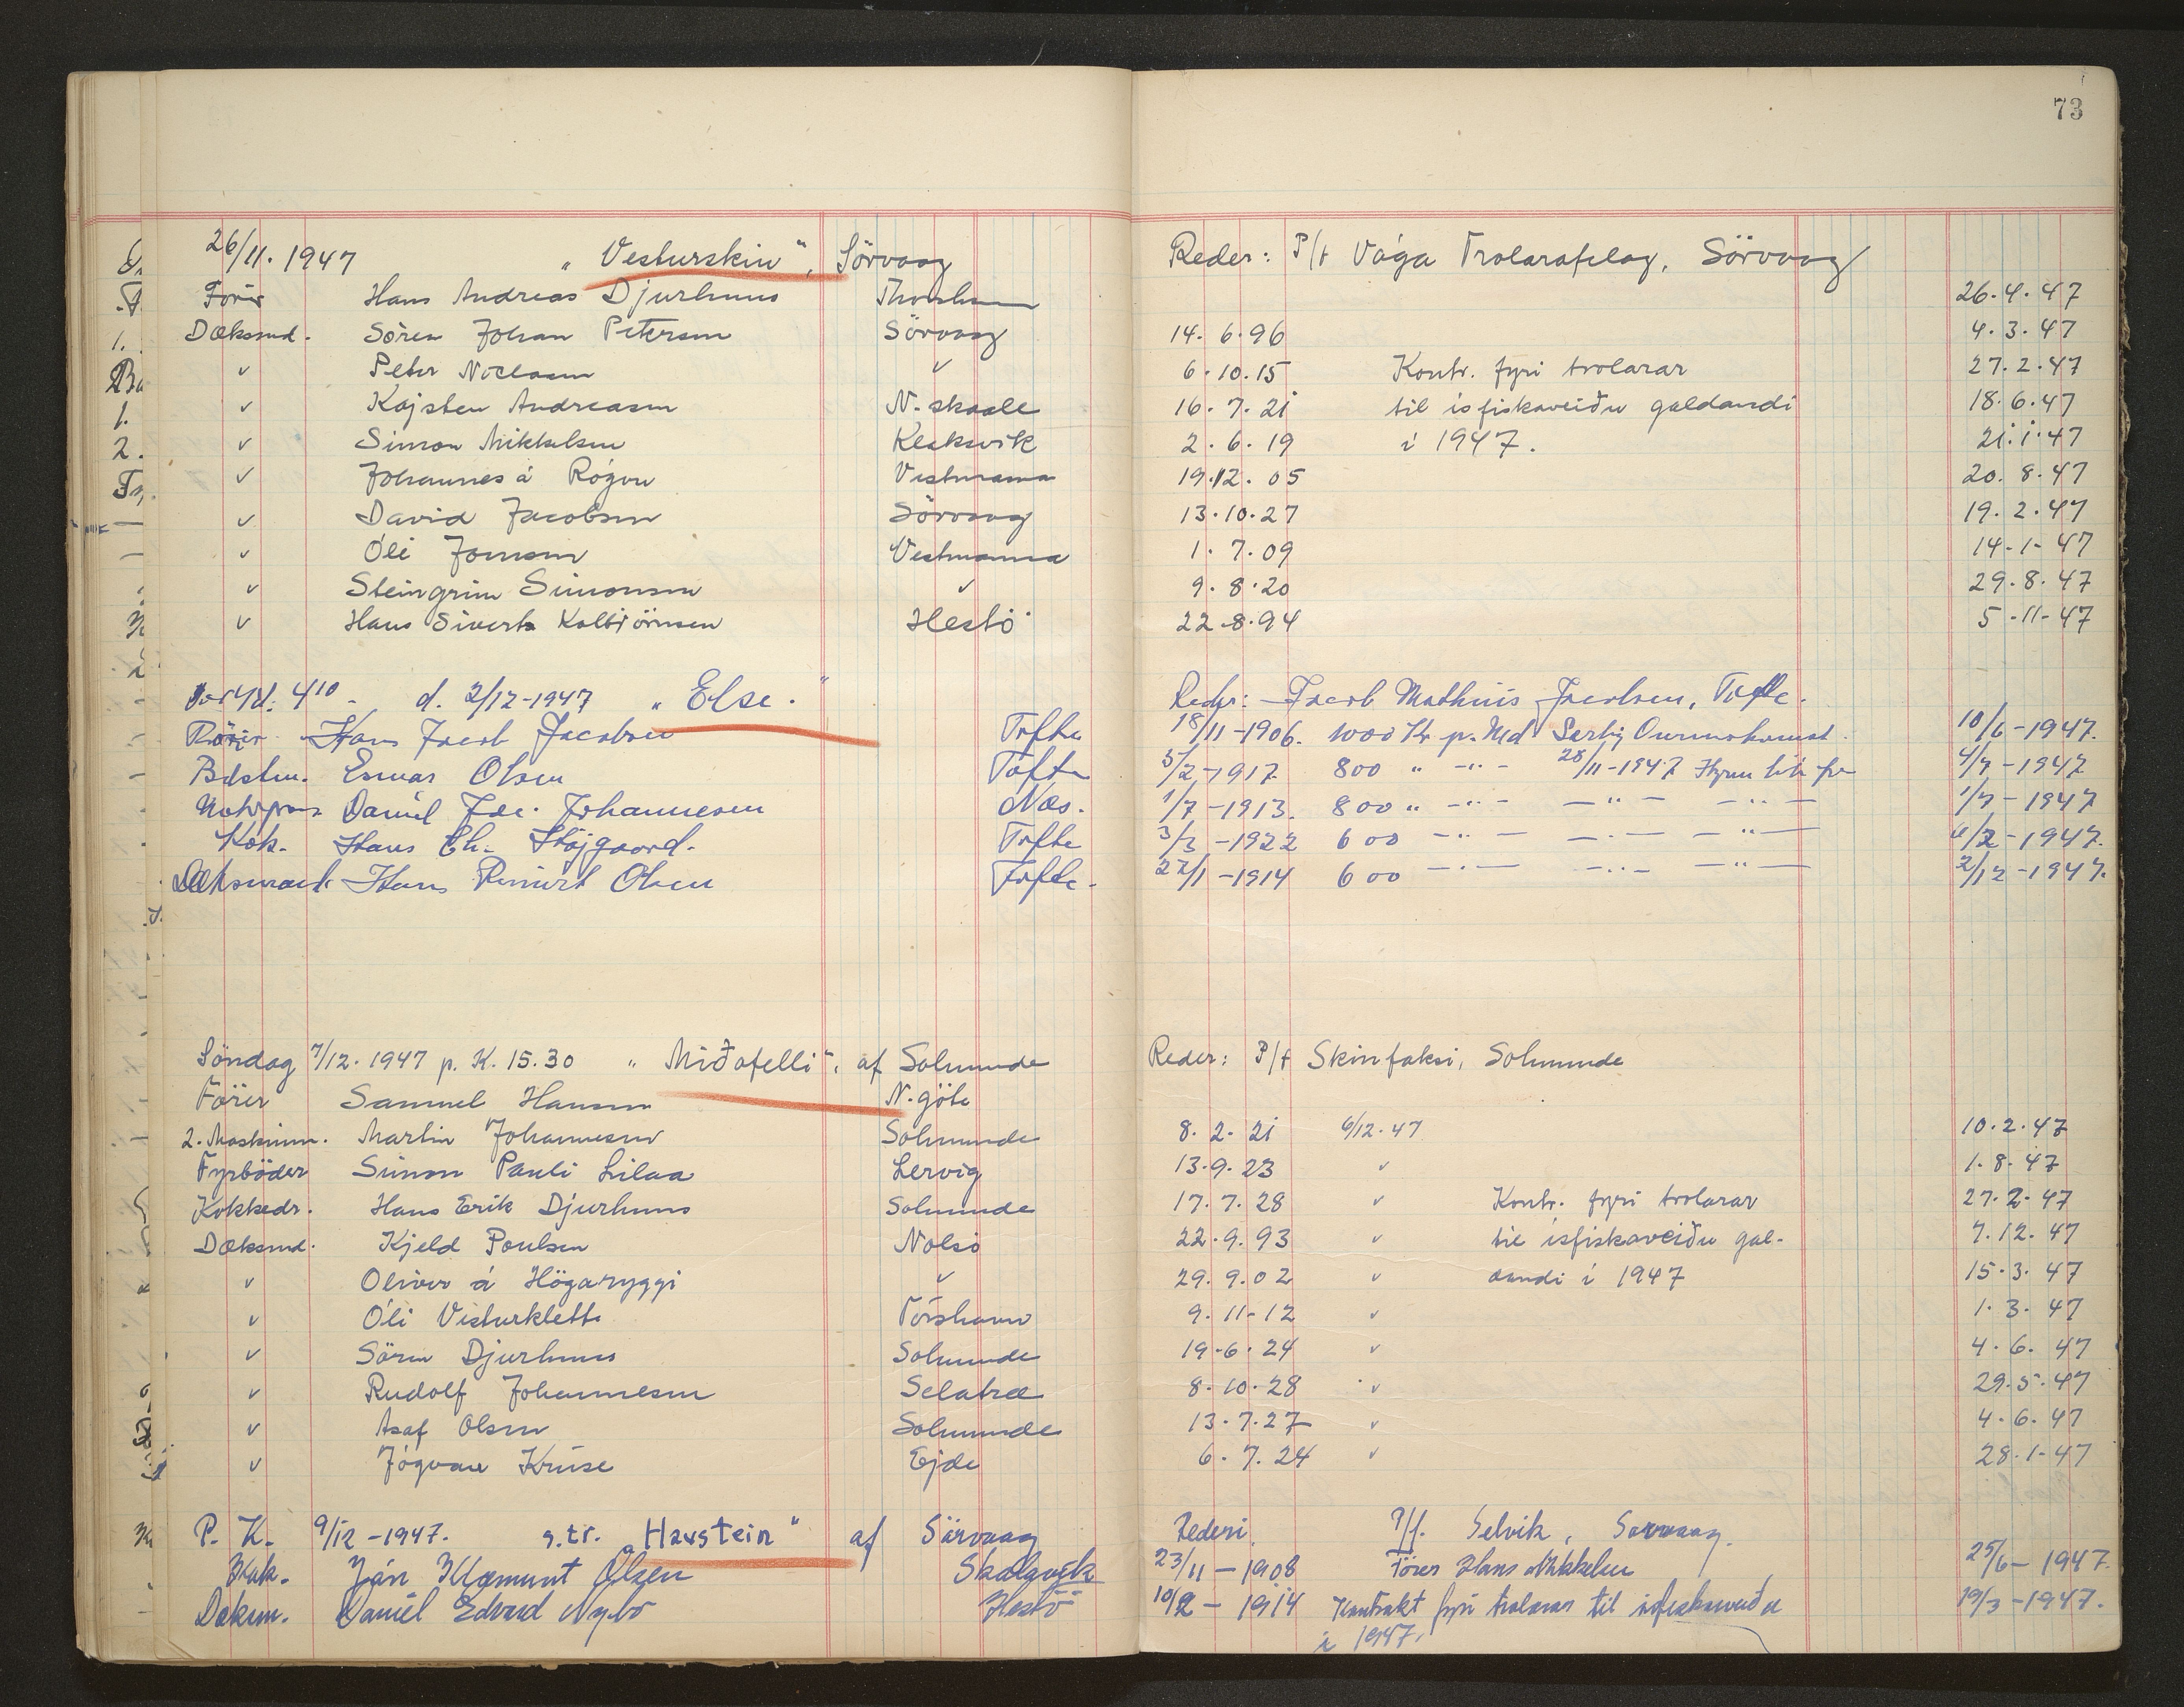 73
26/11. 1947 „Vesturskin“, Sörvaag Reder: P/f Vága Trolarafelag, Sörvaag
Förer Hans Andreas Djurhuus Thorshavn 26.4.47
Dæksmd. Sören Johan Petersen Sörvaag 14.6.96 4.3.47
v Peter Niclasen v 6.10.15 Kontr. fyri trolarar 27.2.47
v Kajsten Andreasen N.skaale 16.7.21 til ísfiskaveiðu galdandi 18.6.47
v Simon Mikkelsen Klaksvik 2.6.19 í 1947. 21.1.47
v Johannes á Rógvu Vestmanna 19.12.05 20.8.47
v David Jacobsen Sörvaag 13.10.27 19.2.47
v Óli Joensen Vestmanna 1.7.09 14-1-47
v Steingrim Simonsen v 9.8.20 29.8.47
v Hans Sivert Kolbjörnsen Hestö 22.8.94 5-11-47
d. 2/12-1947 „Else.“ Reder: Jacob Mathias Jacobsen, Tofte.
Förer Hans Jacob Jacobsen Tofte 18/11-1906. 1000 Kr p. Md 10/6-1947.
Bdstm. Esmar Olsen Tofte 5/2-1917 800 „ -„- 28/11-1947 4/7-1947
Daniel Jac. Johannesen Næs. 1/7-1913. 800 „ -„- -„- -„- 1/7-1947
Kok. Hans Chr. Höjgaard. Tofte 3/3-1922 600 -„- -„- -„- 4/2-1947.
Dæksmand. Hans Reinert Olsen Tofte. 22/1-1914 600 -„- -„- -„- 2/12-1947.
Söndag 7/12.1947 p. K. 15.30 „Miðafelli“, af Solmunde Reder: P/f Skinfaksi, Solmunde
Förer Samuel Hansen N.göte
2. Maskinm. Martin Johannesen Solmunde 8.2.21 6/12.47 10.2.47
Fyrböder Simon Pauli Lilaa Lervig 13.9.23 v 1.8.47
Kokkedr. Hans Erik Djurhuus Solmunde 17.7.28 v Kontr. fyri trolarar 27.2.47
Dæksmd. Kjeld Poulsen Nolsö 22.9.93 v til ísfiskaveiðu gal- 7.12.47
v Oliver á Högaryggi v 29.9.02 v dandi í 1947 15.3.47
v Óli Vesturklett Tórshavn 9.11-12 v 1.3.47
v Sören Djurhuus Solmunde 19.6.24 v 4.6.47
v Rudolf Johannesen Selatræ 8.10.28 v 29.5.47
v Asaf Olsen Solmunde 13.7.27 v 4.6.47
v Jógvan Krúse Ejde 6.7.24 v 28.1-47
P. K. 9/12-1947. s.tr. „Havstein“ af Sörvaag Rederi P/f. Selvik, Sørvaag.
Kok. Ján Klæmint Olsen Skålavik 23/11-1908 Förer Hans Mikkelsen 25/6-1947.
Dæksm. Daniel Edvard Nybo Hestö 10/2-1914 Kontrakt fyri trolarar til ísfiskaveiðu 19/3-1947.
í 1947.